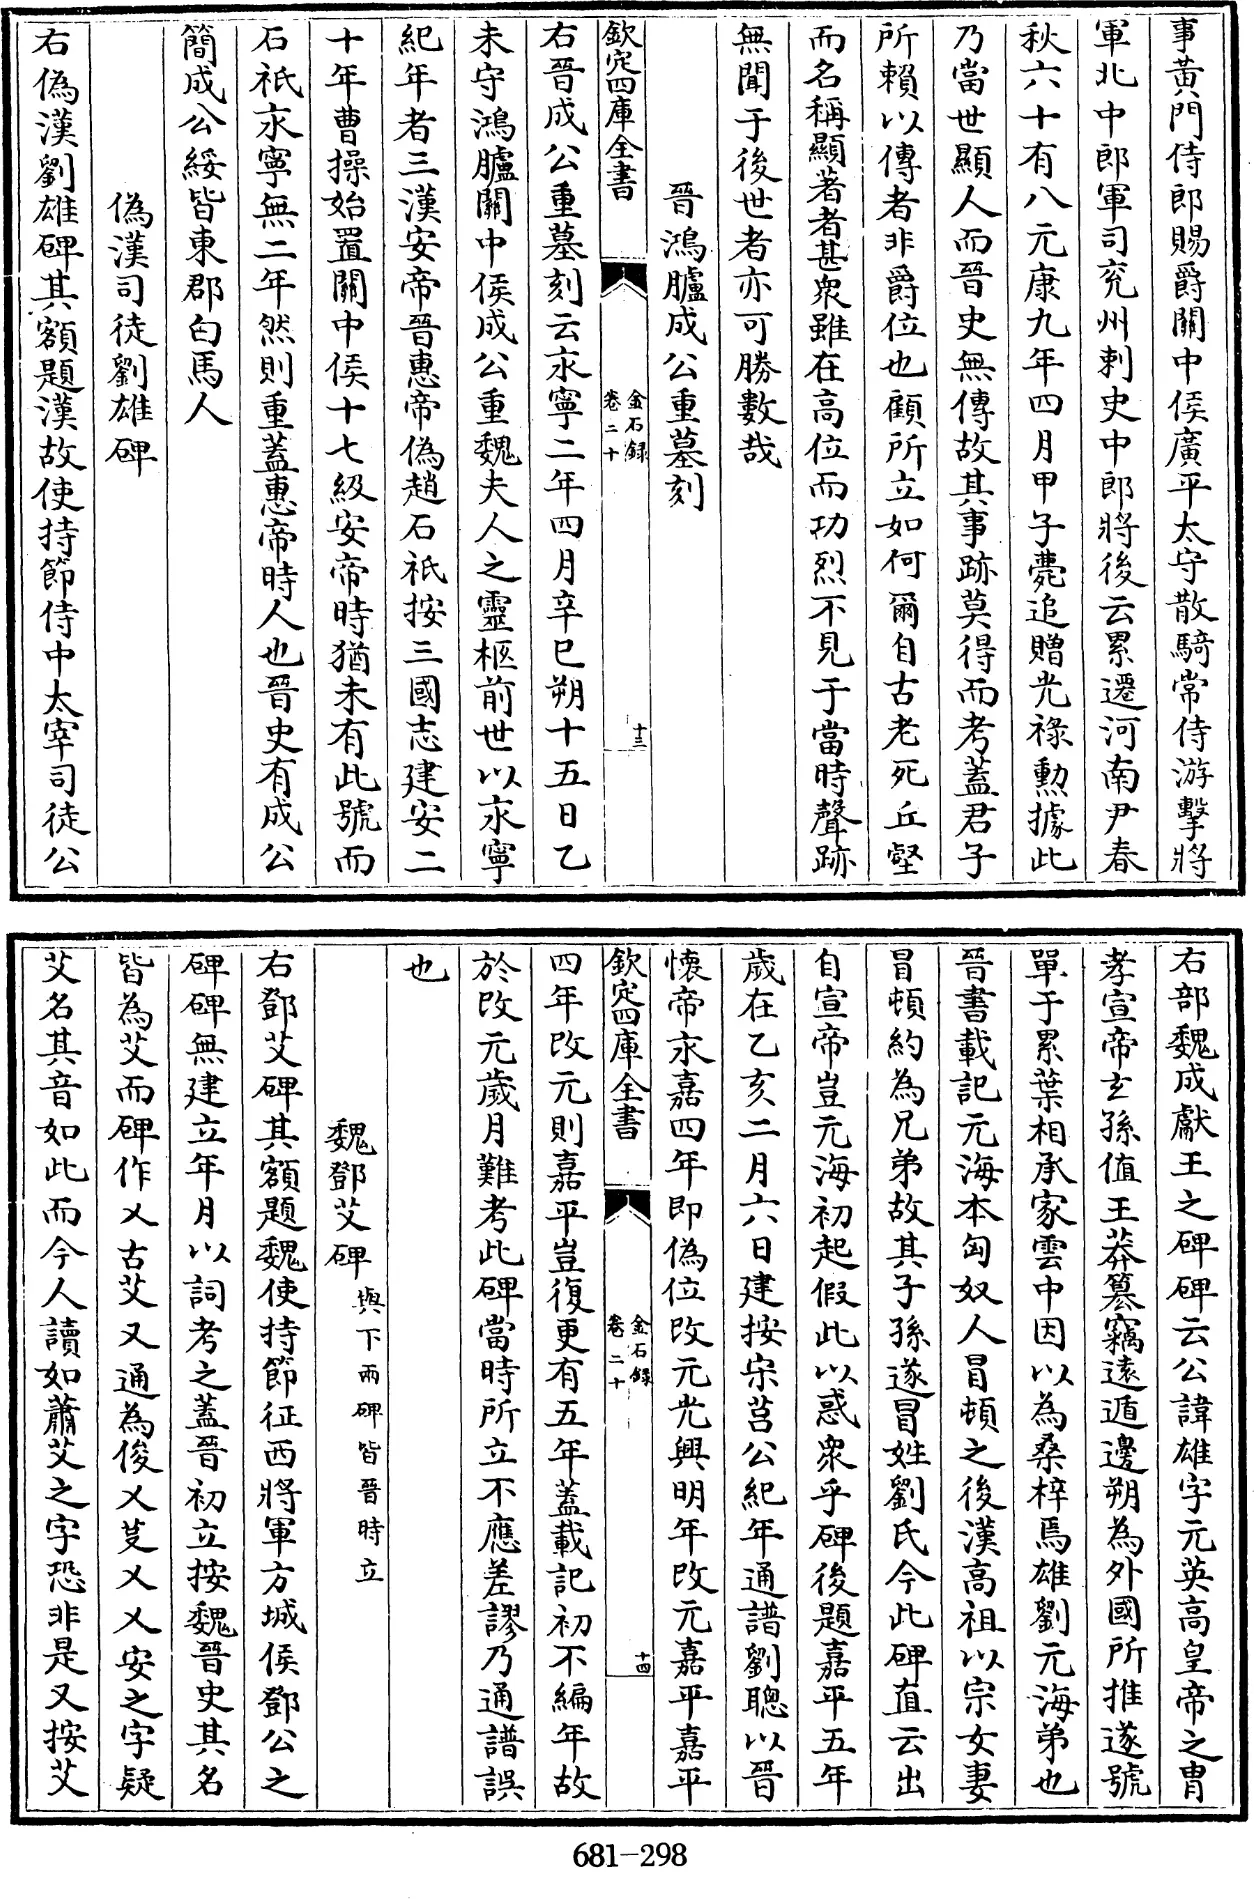 事黄門侍郎賜爵關中侯廣平太守散騎常侍游擊將
軍北中郎軍司兖州刺史中郎將後云累遷河南尹春
秋六十有八元康九年四月甲子薨追贈光祿勲據此
乃當世顯人而晉史無傳故其事跡莫得而考蓋君子
所賴以傳者非爵位也顧所立如何爾自古老死丘壑
而名稱顯著者甚衆雖在高位而功烈不見于當時聲跡
無聞于後世者亦可勝數哉
晉鴻臚成公重墓刻
欽定四庫全書
金石録
卷二十
十三
右晉成公重墓刻云永寧二年四月辛巳朔十五日乙
未守鴻臚關中侯成公重魏夫人之靈柩前世以永寧
紀年者三漢安帝晉惠帝偽趙石祇按三國志建安二
十年曹操始置關中侯十七級安帝時猶未有此號而
石祇永寧無二年然則重蓋惠帝時人也晉史有成公
簡成公綏皆東郡白馬人
偽漢司徒劉雄碑
右偽漢劉雄碑其額題漢故使持節侍中太宰司徒公
右部魏成獻王之碑碑云公諱雄字元英高皇帝之胄
孝宣帝玄孫值王莽簒竊遠遁邊朔為外國所推遂號
單于累葉相承家雲中因以為桑梓焉雄劉元海弟也
晉書載記元海本匈奴人冒頓之後漢高祖以宗女妻
冒頓約為兄弟故其子孫遂冒姓劉氏今此碑直云出
自宣帝豈元海初起假此以惑衆乎碑後題嘉平五年
歲在乙亥二月六日建按宋莒公紀年通譜劉聰以晉
懷帝永嘉四年即偽位改元光興明年改元嘉平嘉平
欽定四庫全書
金石録
卷二十
十四
四年改元則嘉平豈復更有五年蓋載記初不編年故
於改元歲月難考此碑當時所立不應差謬乃通譜誤
也
魏鄧艾碑與下兩碑皆晉時立
右鄧艾碑其額題魏使持節征西將軍方城侯鄧公之
碑碑無建立年月以詞考之蓋晉初立按魏晉史其名
皆為艾而碑作乂古艾又通為俊乂芟乂乂安之字疑
艾名其音如此而今人讀如蕭艾之字恐非是又按艾
681-298